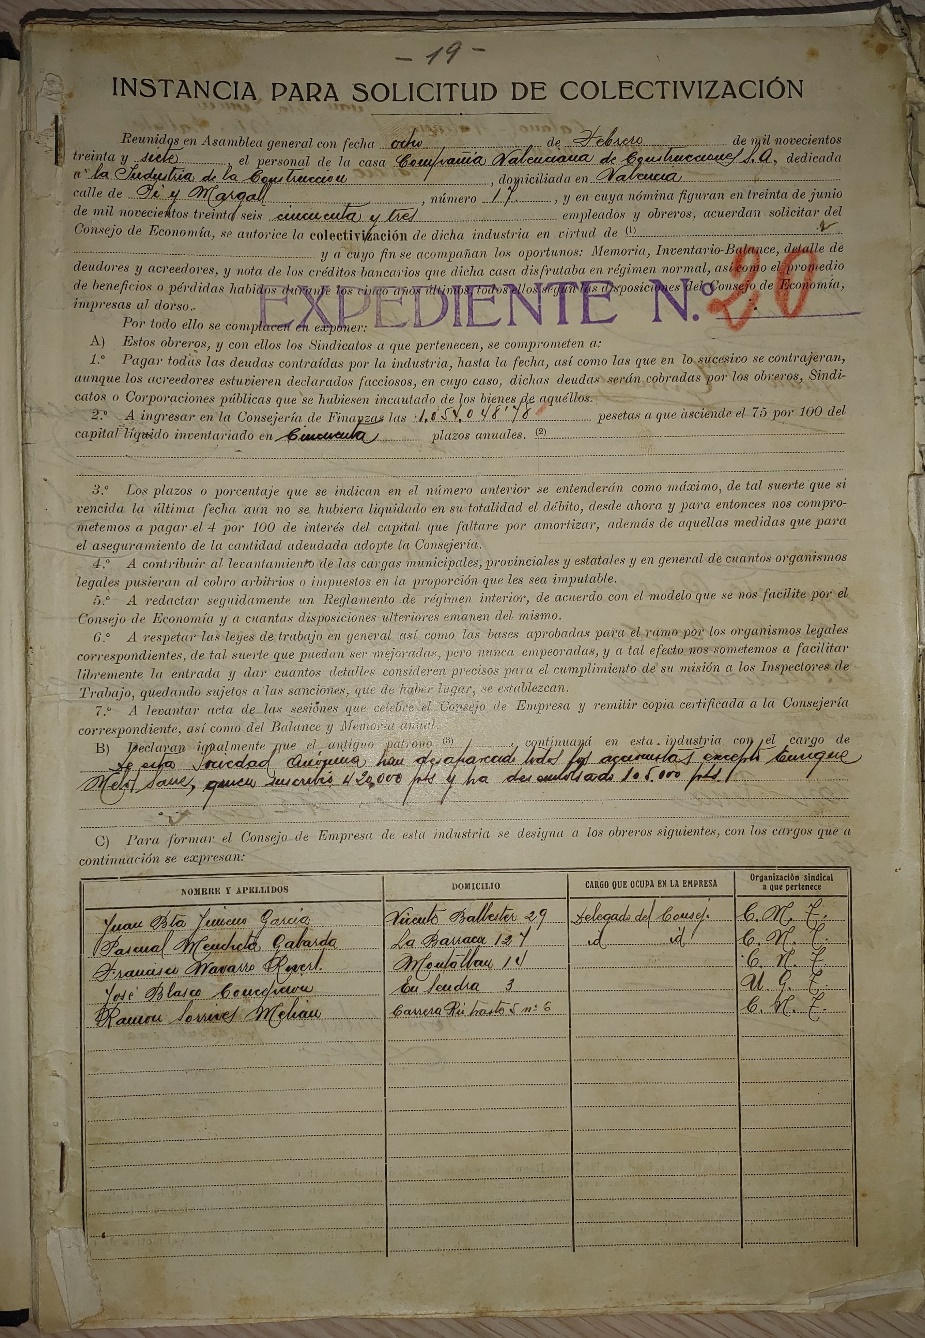 - 19 -
INSTANCIA PARA SOLICITUD DE COLECTIVIZACIÓN
Reunidos en Asamblea general con fecha ocho de Febrero de mil novecientos
treinta y siete, el personal de la casa Compañia Valenciana de Construcciones S.A, dedicada
a la Industria de la Construccion, domiciliada en Valencia
calle de Pi y Margall, número 17, y en cuya nómina figuran en treinta de junio
de mil novecientos treinta seis cincuenta y tres empleados y obreros, acuerdan solicitar del
Consejo de Economía, se autorice la colectivización de dicha industria en virtud de (1)
y a cuyo fin se acompañan los oportunos: Memoria, Inventario-Balance, detalle de
deudores y acreedores, y nota de los créditos bancarios que dicha casa disfrutaba en régimen normal, así como el promedio
de beneficios o pérdidas habidos durante los cinco años últimos, todos ellos según las disposiciones del Consejo de Economía,
impresas al dorso.
EXPEDIENTE N.º 20
Por todo ello se complacen en exponer:
A) Estos obreros, y con ellos los Sindicatos a que pertenecen, se comprometen a:
1.º Pagar todas las deudas contraídas por la industria, hasta la fecha, así como las que en lo sucesivo se contrajeran,
aunque los acreedores estuvieren declarados facciosos, en cuyo caso, dichas deudas serán cobradas por los obreros, Sindi-
catos o Corporaciones públicas que se hubiesen incautado de los bienes de aquéllos.
2.º A ingresar en la Consejería de Finanzas las 1.054,048'78 pesetas a que asciende el 75 por 100 del
capital líquido inventariado en Cincuenta plazos anuales. (2)
3.º Los plazos o porcentaje que se indican en el número anterior se entenderán como máximo, de tal suerte que si
vencida la última fecha aun no se hubiera liquidado en su totalidad el débito, desde ahora y para entonces nos compro-
metemos a pagar el 4 por 100 de interés del capital que faltare por amortizar, además de aquellas medidas que para
el aseguramiento de la cantidad adeudada adopte la Consejería.
4.º A contribuir al levantamiento de las cargas municipales, provinciales y estatales y en general de cuantos organismos
legales pusieran al cobro arbitrios o impuestos en la proporción que les sea imputable.
5.º A redactar seguidamente un Reglamento de régimen interior, de acuerdo con el modelo que se nos facilite por el
Consejo de Economía y a cuantas disposiciones ulteriores emanen del mismo.
6.º A respetar las leyes de trabajo en general así como las bases aprobadas para el ramo por los organismos legales
correspondientes, de tal suerte que puedan ser mejoradas, pero nunca empeoradas, y a tal efecto nos sometemos a facilitar
libremente la entrada y dar cuantos detalles consideren precisos para el cumplimiento de su misión a los Inspectores de
Trabajo, quedando sujetos a las sanciones, que de haber lugar, se establezcan.
7.º A levantar acta de las sesiones que celebre el Consejo de Empresa y remitir copia certificada a la Consejería
correspondiente, así como del Balance y Memoria anual.
B) Declaran igualmente que el antiguo patrono (3), continuará en esta industria con el cargo de
De esta Sociedad Anónima han desaparecido todos los accionistas excepto Enrique
Meló Sanz, quien suscribió 420,000 pts y ha desembolsado 105.000 pts.
C) Para formar el Consejo de Empresa de esta industria se designa a los obreros siguientes, con los cargos que a
continuación se expresan:
NOMBRE Y APELLIDOS DOMICILIO CARGO QUE OCUPA EN LA EMPRESA Organización sindical a que pertenece
Juan Bta Jimeno García Vicente Ballester 29 Delegado del Consej. C. N. T.
Pascual Mendieta Gabarda La Barraca 127 id id C. N. T.
Francisco Navarro Rovert. Montalbau 14 C. N. T.
José Blasco Concepcion En Sendra 3 U. G. T.
Ramon Sorrives Melian Carrera n.º 6 C. N. T.